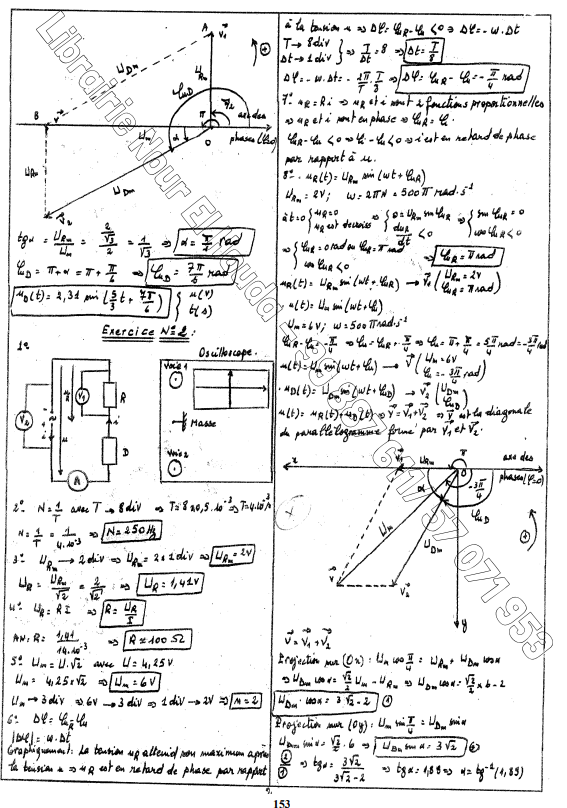 A
V₁
U_Dm
U_Rm
φ_uD
π/2
B
π
axe des
U_m
α
O
phases (φ=0)
U_Rm
U_Dm
V₂
tgα = U_Rm/U_m = 1/√3 ⇒ α = π/6 rad
φ_uD = π+α = π + π/6 ⇒ φ_uD = 7π/6 rad
u_D(t) = 2,31 sin( t + 7π/6) { u(V) t(s)
Exercice N°2 :
1°
Oscilloscope.
voie 1
Masse
voie 2
V₂
V₁
R
u
i
D
A
2° N = 1/T avec T → 8 div ⇒ T = 8×0,5.10⁻³ ⇒ T = 4.10⁻³ s
N = 1/T = 1/4.10⁻³ ⇒ N = 250 Hz
3° U_Rm → 2 div ⇒ U_Rm = 2×1 div ⇒ U_Rm = 2V
U_R = U_Rm/√2 = 2/√2 ⇒ U_R = 1,41 V
4° U_R = R I ⇒ R = U_R/I
AN: R = 1,41/14.10⁻³ ⇒ R ≈ 100 Ω
5° U_m = U.√2 avec U = 4,25 V
U_m = 4,25×√2 ⇒ U_m = 6V
U_m → 3 div ⇒ 6V → 3 div ⇒ 1 div → 2V ⇒ n = 2
6° Δφ = φ_uR - φ_u
|Δφ| = w.Δt
Graphiquement: la tension u_R atteint son maximum après
la tension u ⇒ u_R est en retard de phase par rapport
à la tension u ⇒ Δφ = φ_uR - φ_u < 0 ⇒ Δφ = -w.Δt
T → 8 div
Δt → 1 div } ⇒ T/Δt = 8 ⇒ Δt = T/8
Δφ = -w.Δt = -2π/T . T/8 ⇒ Δφ = φ_uR - φ_u = -π/4 rad
7° u_R = Ri ⇒ u_R et i sont 2 fonctions proportionnelles
⇒ u_R et i sont en phase ⇒ φ_uR = φ_i
φ_uR - φ_u < 0 ⇒ φ_i - φ_u < 0 ⇒ i est en retard de phase
par rapport à u.
8° . u_R(t) = U_Rm sin(wt + φ_uR)
U_Rm = 2V ; w = 2πN = 500π rad.s⁻¹
à t=0 { u_R = 0 u_R est décroiss ⇒ { 0 = U_Rm sin φ_uR du_R/dt < 0 ⇒ { sin φ_uR = 0 cos φ_uR < 0
⇒ { φ_uR = 0 rad ou φ_uR = π rad cos φ_uR < 0 ⇒ φ_uR = π rad
u_R(t) = U_Rm sin(wt + φ_uR) → V₁ (U_Rm = 2V φ_uR = π rad)
u(t) = U_m sin(wt + φ_u)
U_m = 6V ; w = 500π rad.s⁻¹
φ_uR - φ_u = -π/4 ⇒ φ_u = φ_uR + π/4 ⇒ φ_u = π + π/4 = 5π/4 rad = -3π/4 rad
u(t) = U_m sin(wt + φ_u) → V (U_m = 6V φ_u = -3π/4 rad)
. u_D(t) = U_Dm sin(wt + φ_uD) → V₂ (U_Dm φ_uD)
u(t) = u_R(t) + u_D(t) ⇒ V = V₁ + V₂ ⇒ V est la diagonale
du parallélogramme formé par V₁ et V₂.
x
V₁
U_Rm
π
O
axe des
phases (φ=0)
α
-3π/4
φ_uD
U_m
U_Dm
V
V₂
y
V = V₁ + V₂
Projection sur (Ox) : U_m cos π/4 = U_Rm + U_Dm cosα
⇒ U_Dm cosα = √2/2 U_m - U_Rm ⇒ U_Dm cosα = √2/2 × 6 - 2
U_Dm . cosα = 3√2 - 2 (1)
Projection sur (Oy) : U_m sin π/4 = U_Dm sinα
U_Dm sinα = √2/2 . 6 ⇒ U_Dm sinα = 3√2 (2)
(2)/(1) ⇒ tgα = 3√2/(3√2 - 2) ⇒ tgα = 1,89 ⇒ α = tg⁻¹(1,89)
153